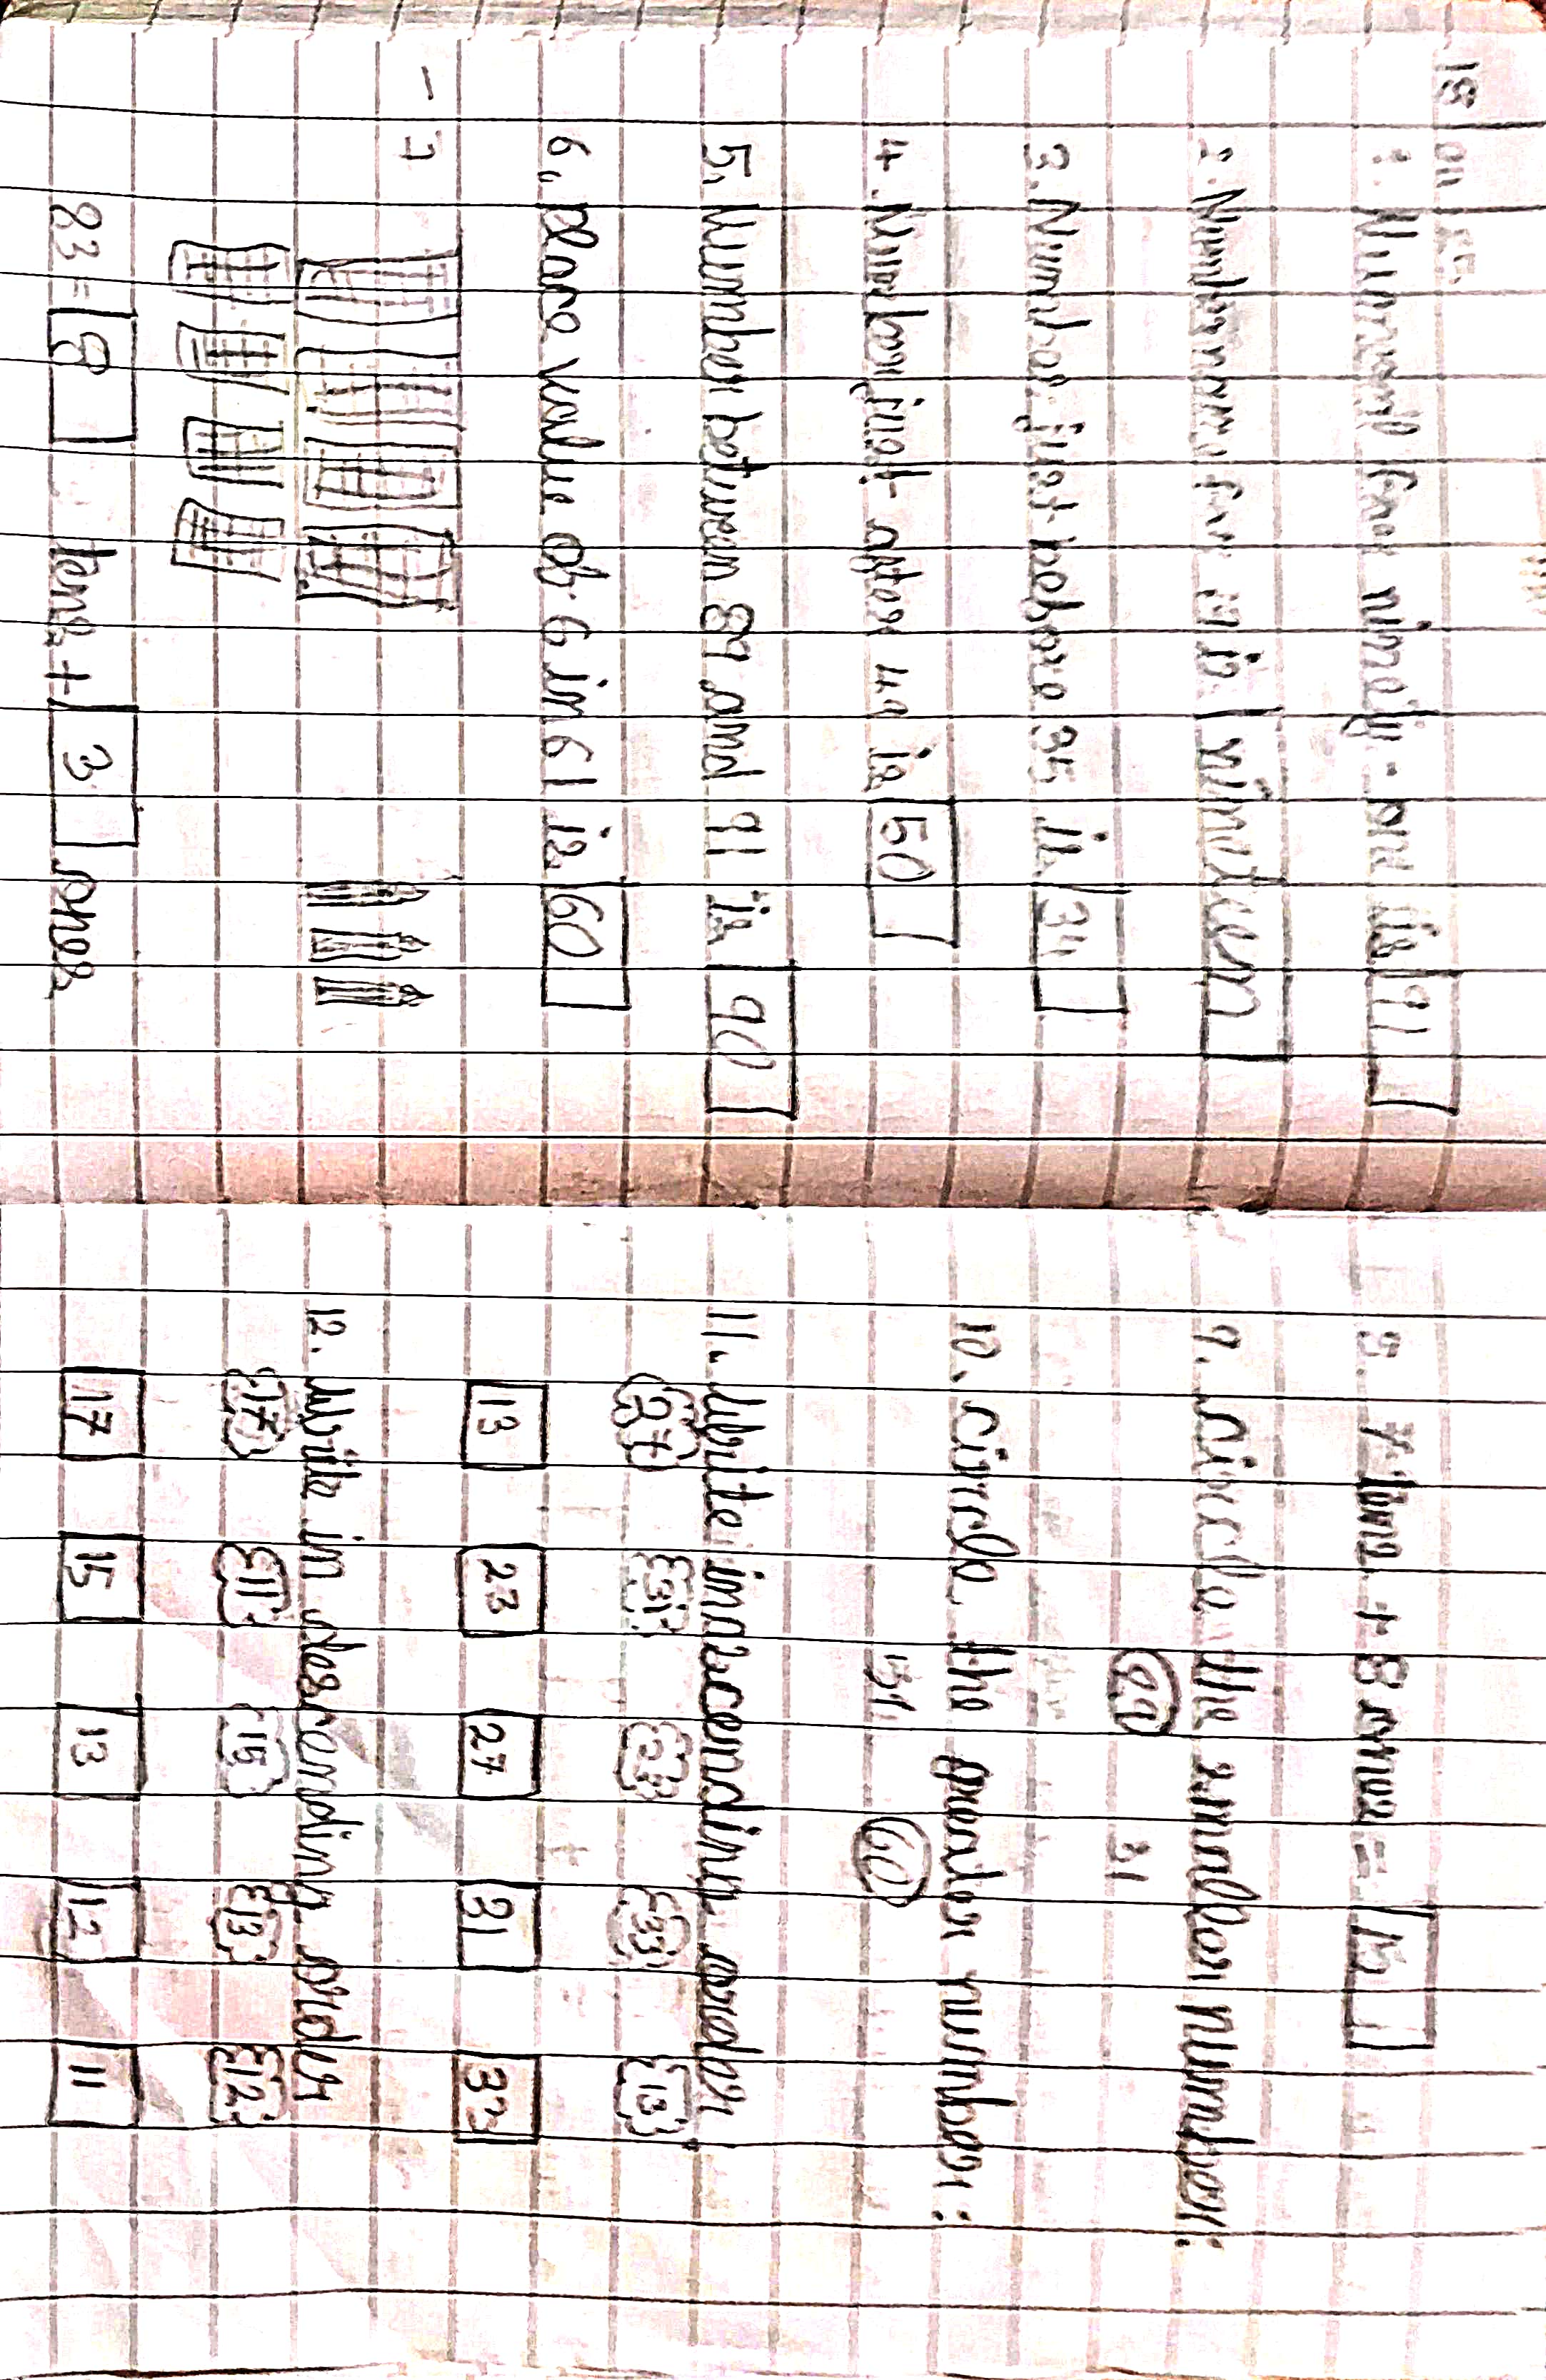 1. Numeral for ninety-one is 91
2. Number name for 19 is nineteen
3. Number just before 35 is 34
4. Number just after 49 is 50
5. Number between 89 and 91 is 90
6. Place value of 6 in 61 is 60
7
83 = 8 tens + 3 ones
7 tens + 5 ones =
9. Circle the smaller number:
29 31
10. Circle the greater number:
51 60
11. Write in ascending order
27 31 23 33 13
13 23 27 31 33
12. Write in descending order
17 11 15 13 12
17 15 13 12 11